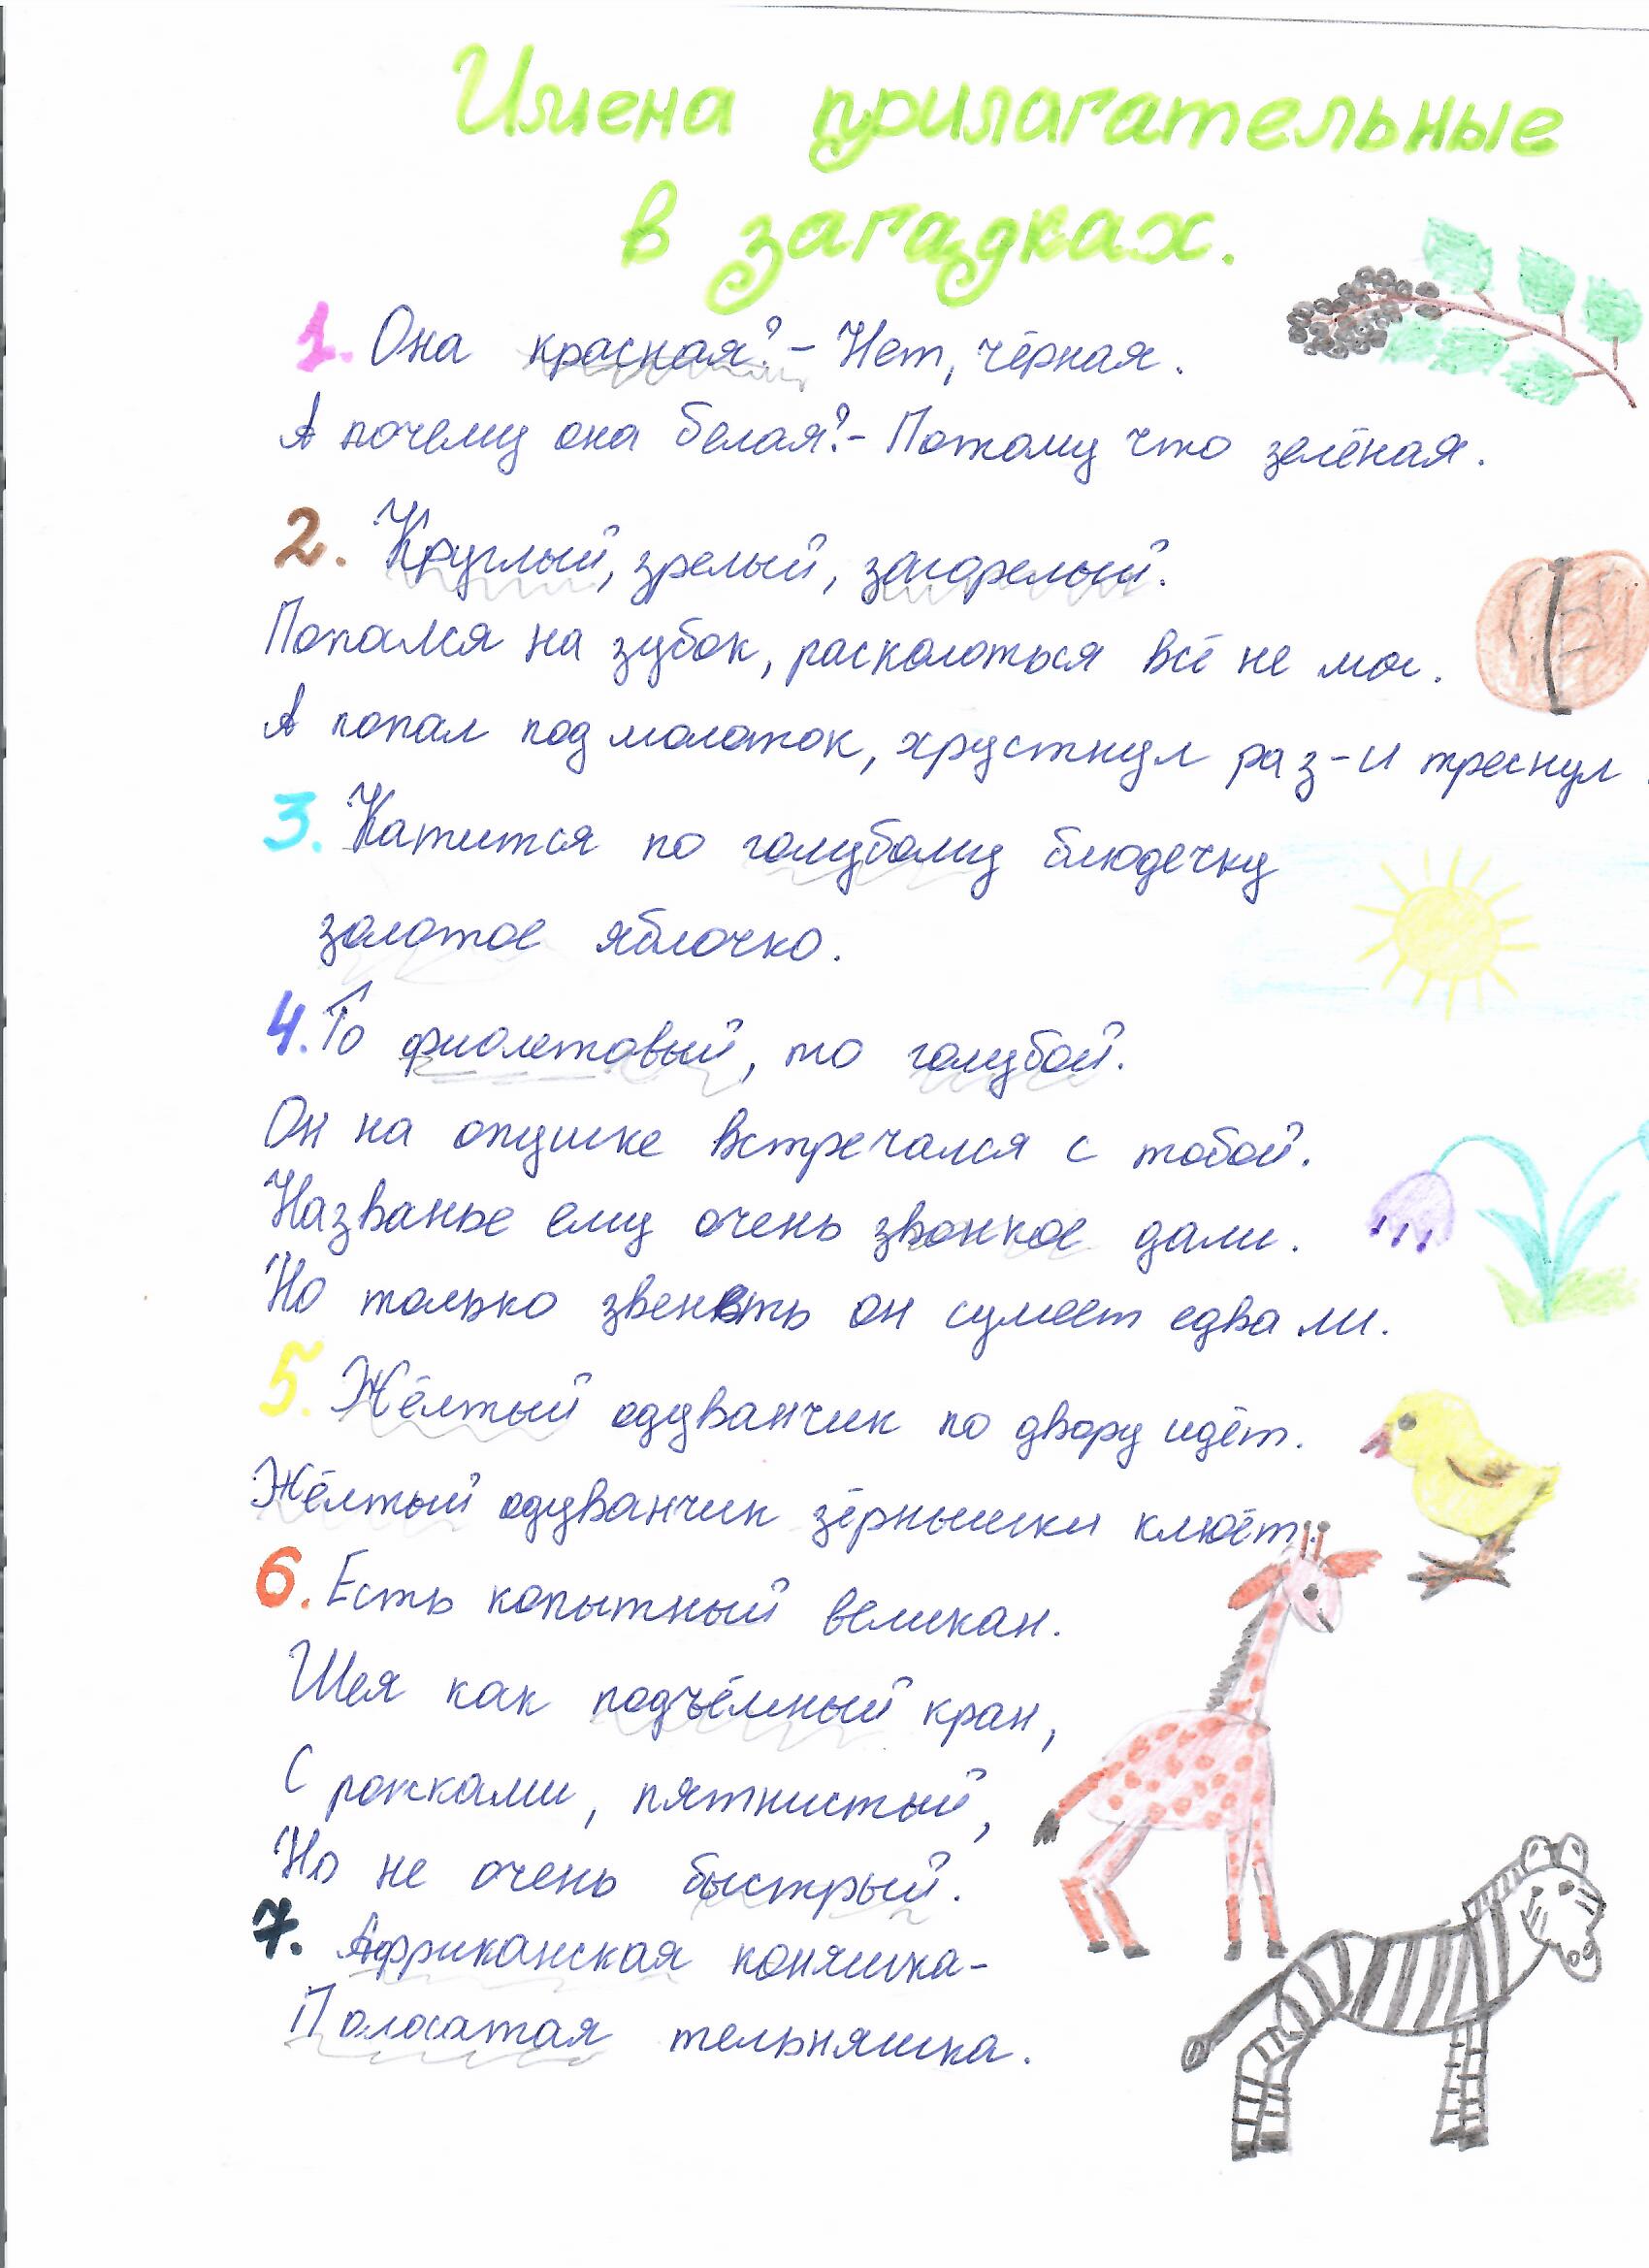 Имена прилагательные
в загадках.
1. Она красная? - Нет, чёрная.
А почему она белая? - Потому что зелёная.
2. Круглый, зрелый, загорелый.
Попался на зубок, расколоться всё не мог.
А попал под молоток, хрустнул раз - и треснул.
3. Катится по голубому блюдечку
золотое яблочко.
4. То фиолетовый, то голубой.
Он на опушке встречался с тобой.
Названье ему очень звонкое дали.
Но только звенеть он сумеет едва ли.
5. Жёлтый одуванчик по двору идёт.
Жёлтый одуванчик зёрнышки клюёт.
6. Есть копытный великан.
Шея как подъёмный кран,
С рожками, пятнистый,
Но не очень быстрый.
7. Африканская коняшка -
Полосатая тельняшка.